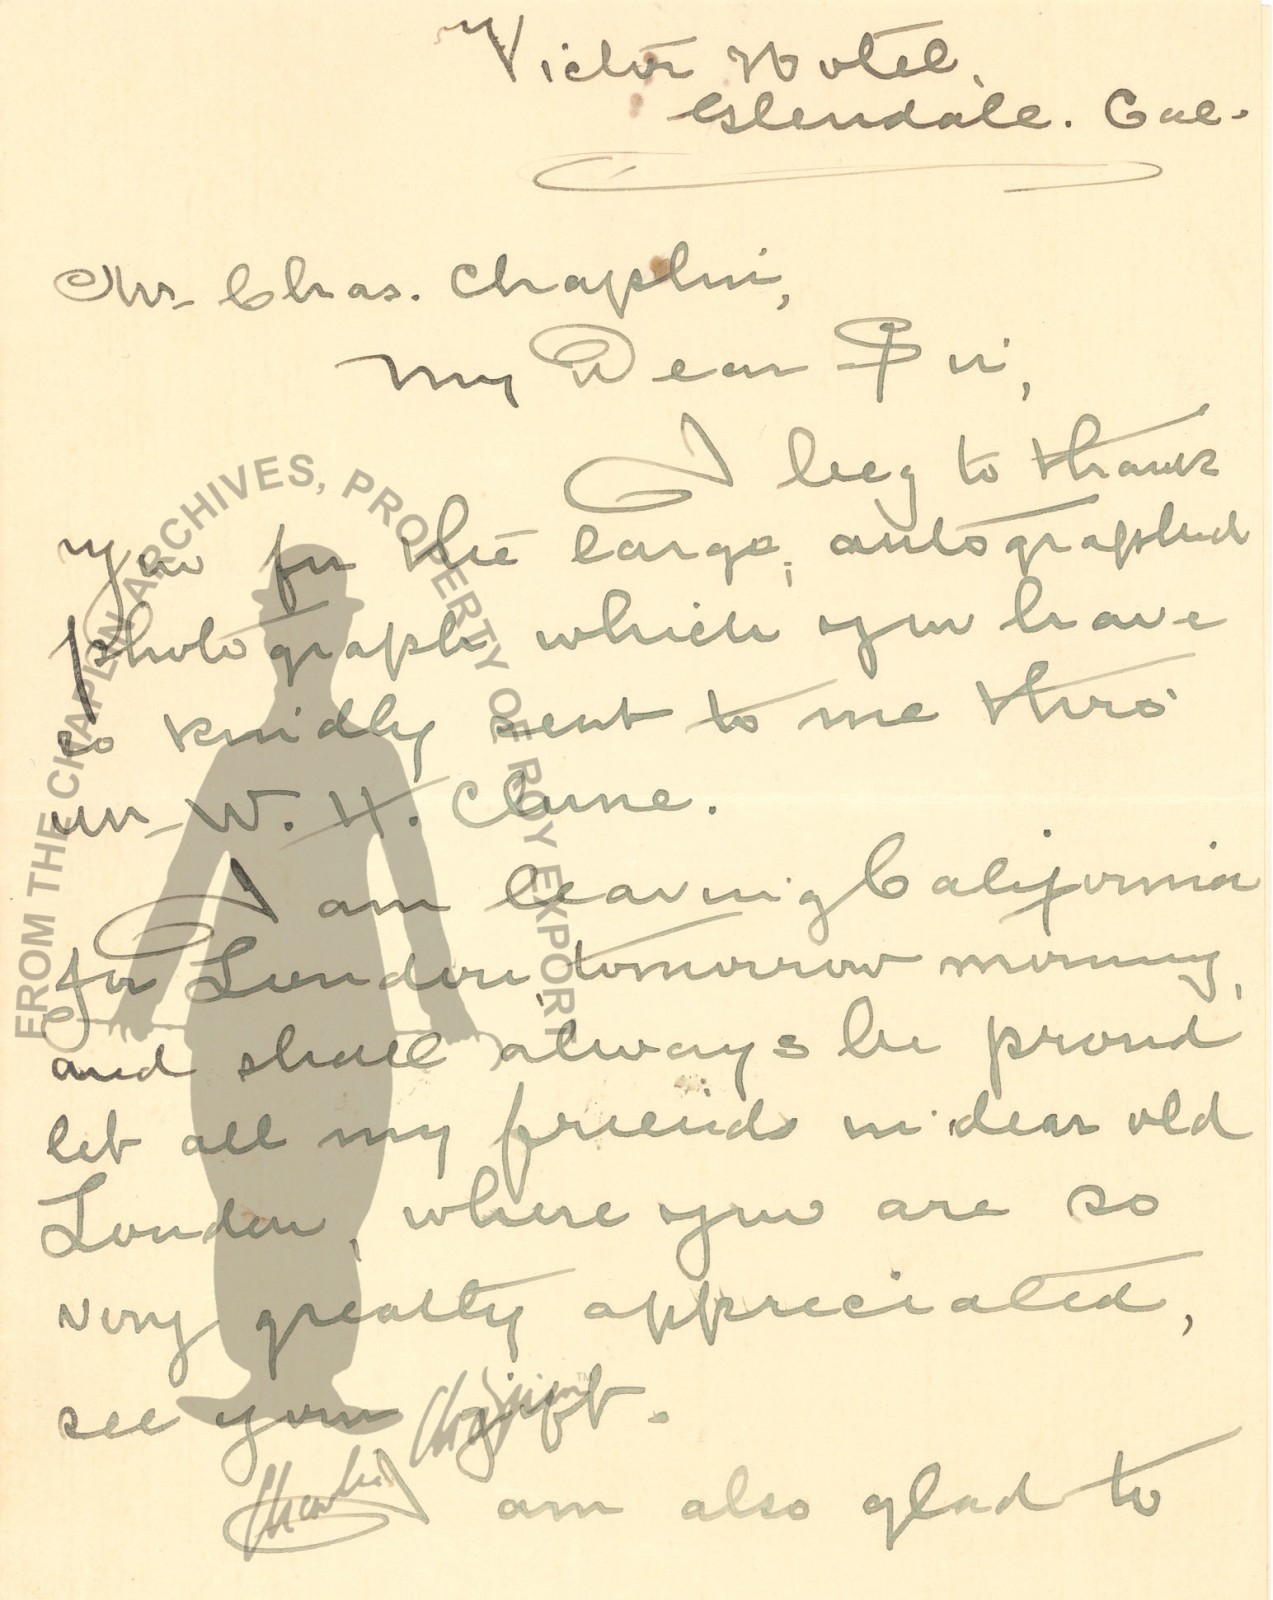 Victor Hotel,
Glendale. Cal.
Mr Chas. Chaplin,
My Dear Sir,
I beg to thank
you for the large, autographed
photograph, which you have
so kindly sent to me thro'
Mr W. H. Clune.
I am leaving California
for London, tomorrow morning,
and shall always be proud
let all my friends in dear old
London, where you are so
very greatly appreciated,
see your gift.
I am also glad to
FROM THE CHAPLIN ARCHIVES, PROPERTY OF ROY EXPORT
Charlie Chaplin™